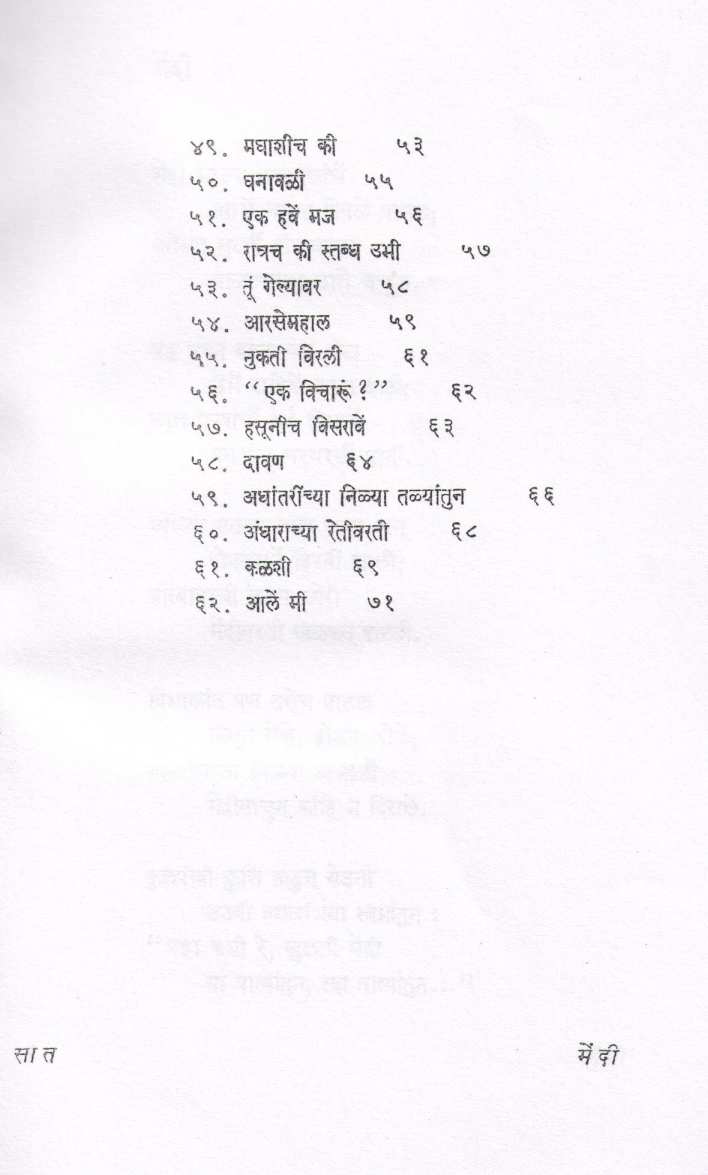 ४९. मघाशीच की ५३
५०. घनावळी ५५
५१. एक हवें मज ५६
५२. रात्रच की स्तब्ध उभी ५७
५३. तूं गेल्यावर ५८
५४. आरसेमहाल ५९
५५. नुकती विरली ६१
५६. “एक विचारूं ?” ६२
५७. हसूनीच विसरावें ६३
५८. दावण ६४
५९. अधांतरींच्या निळ्या तळ्यांतुन ६६
६०. अंधाराच्या रेतीवरती ६८
६१. कळशी ६९
६२. आलें मी ७१
सात मेंदी